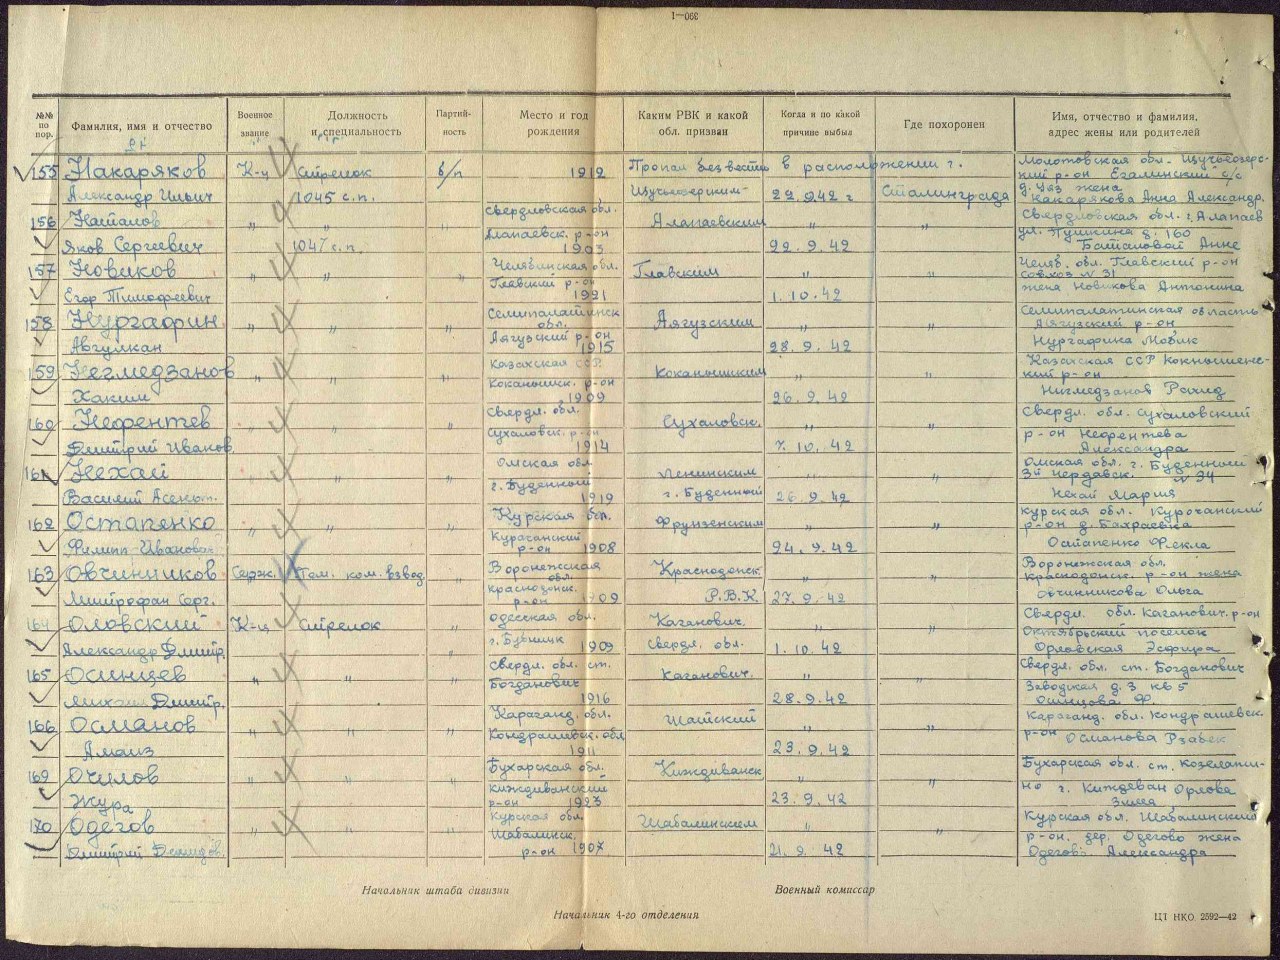 1—066
№№ по пор.
Фамилия, имя и отчество
Военное звание
Должность и специальность
Партий-ность
Место и год рождения
Каким РВК и какой обл. призван
Когда и по какой причине выбыл
Где похоронен
Имя, отчество и фамилия, адрес жены или родителей
155 Накаряков К-ц Стрелок б/п 1912 Пропал без вести в расположении г. Молотовская обл. Щучьеозерс-
кий р-он Егалинский с/с
Александр Ильич 1045 с.п. Щучьеозерским 22.9.42 г Сталинграда жена
Накарякова Анна Александр.
156 Наталов " " " Свердловская обл. Алапаевским " " Свердловская обл. г. Алапаев
ул. Пушкина д. 160
Яков Сергеевич 1047 с.п. Алапаевск. р-он 1903 22.9.42 Баталовой Анне
157 Новиков " " " Челябинская обл. Главским " " Челяб. обл. Главский р-он
совхоз № 31
Егор Тимофеевич Главский р-он 1921 1.10.42 жена Новикова Антонина
158 Нургафин " " " Семипалатинск обл. Аягузским " " Семипалатинская область
Аягузский р-он
Авгулкан Аягузский р-он 1915 28.9.42 Нургафина
159 Негмедзанов " " " Казахская ССР Коканышским " " Казахская ССР
кий р-он
Хаким Коканышск. р-он 1909 26.9.42 Нигмедзанов Рашид
160 Нефентев " " " Свердл. обл. Сухаловск. " " Свердл. обл. Сухаловский
Дмитрий Иванов. Сухаловск. р-он 1914 7.10.42 р-он Нефентева
Александра
161 Нехай " " " Омская обл. Ленинским " " Омская обл. г. Буденный
№ 34
Василий г. Буденный 1919 г. Буденный 26.9.42 Нехай Мария
162 Остапенко " " " Курская обл. Фрунзенским " " Курская обл. Курочанский
р-он д. Бахраевка
Филипп Иванович Курасанский р-он 1908 24.9.42 Остапенко Фекла
163 Овчинников Серж. Пом. ком. взвод. " Воронежская обл. Краснодонск. " " Воронежская обл.
Краснодонск. р-он жена
Митрофан Серг. Краснодонск. р-он 1909 Р.В.К. 27.9.42 Овчинникова Ольга
164 Оловский К-ц Стрелок " Одесская обл. Каганович. " " Свердл. обл. Каганович. р-он
Октябрьский поселок
Александр Дмитр. 1909 Свердл. обл. 1.10.42 Орловская Эсфира
165 Осинцев " " " Свердл. обл. ст. Каганович. " " Свердл. обл. ст. Богданович
Заводская д. 3 кв 5
Михаил Дмитр. Богданович 1916 28.9.42 Осинцова Ф.
166 Османов " " " Караганд. обл. Шатский " " Караганд. обл. Кондрашевск.
р-он
Амаиз Кондрашевск. обл 1911 23.9.42 Османова Рзабек
169 Очилов " " " Бухарская обл. Киждиванск " " Бухарская обл. ст.
Жура Киждиванский р-он 1923 23.9.42 г. Киждеван Орлова
170 Одегов " " " Курская обл. Шабалинским " " Курская обл. Шабалинский
р-он. дер. Одегово жена
Дмитрий Шабалинск. р-он 1907 21.9.42 Одегова Александра
Начальник штаба дивизии
Военный комиссар
Начальник 4-го отделения
ЦТ НКО 2592—42